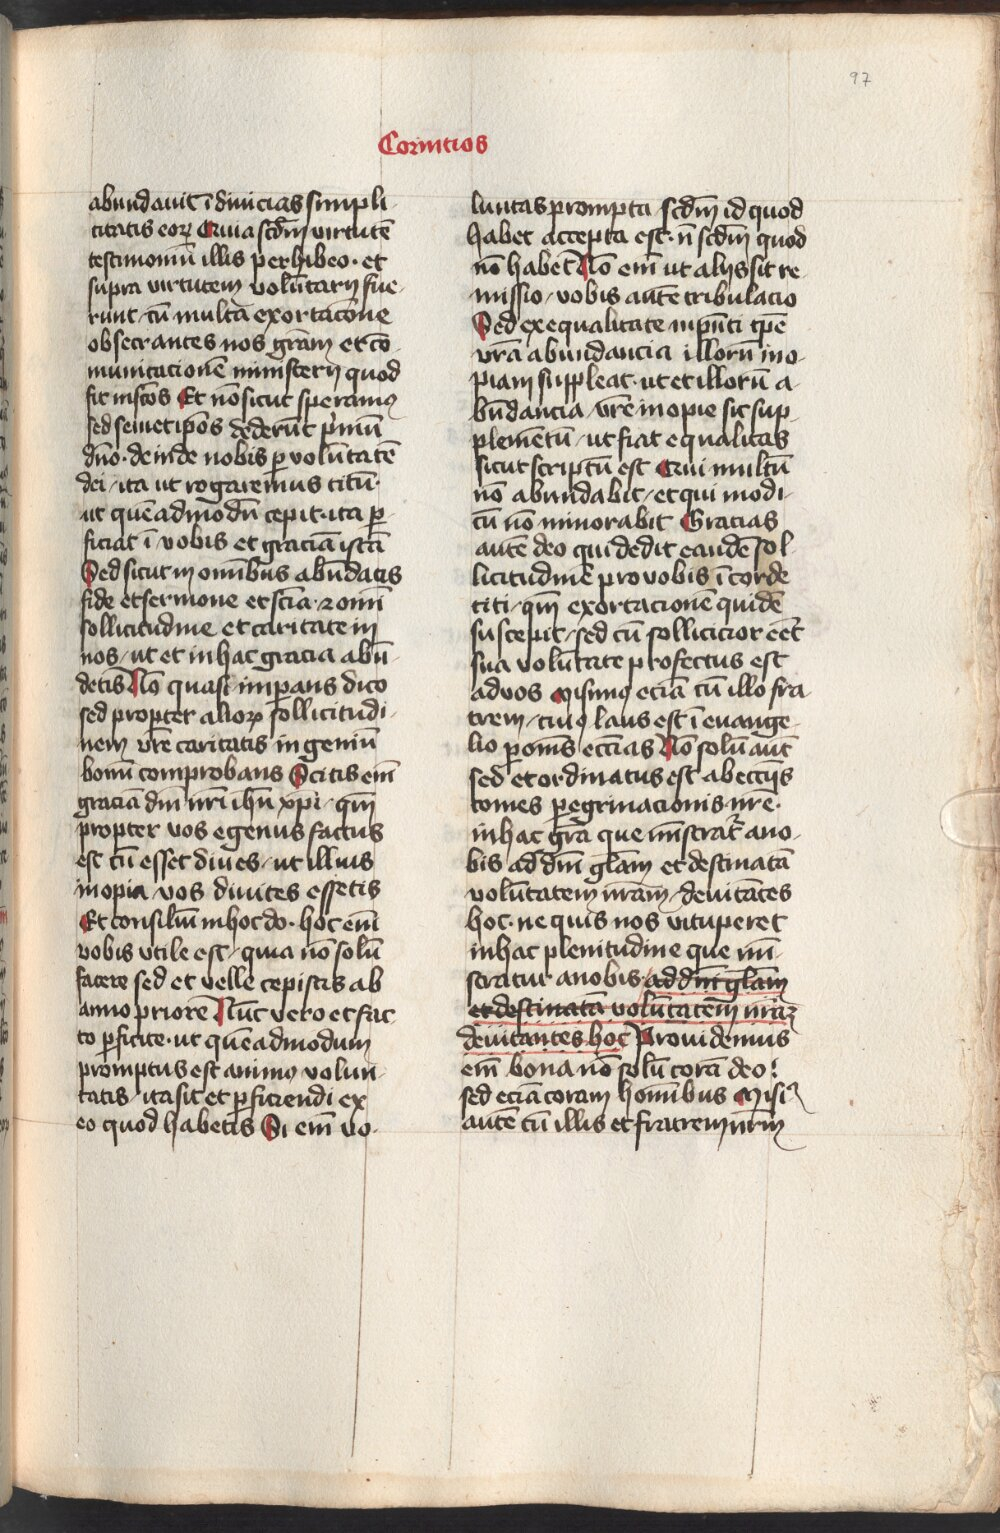 97
Corinttios
abundauit ī diuicias simpli-
citatis eorꝫ Quia scd̄m virtutē
testimoniū illis perhibeo · et
supra virtutem volūtarij fue-
runt / cū multa exortacōne
obsecrantes nos grām et cō-
municacionē ministerij quod
fit in sc̄os Et nō sicut speramꝰ
sed semetip̄os dederūt p̄mū
dn̄o · deinde nobis ꝑ volūtatē
dei / ita ut rogaremus titū ·
ut quēadmodū cepit · ita ꝑ-
ficiat ī vobis et graciā istā
Sed sicut in om̄ibus abūdatis
fide et sermone et scīa · ⁊ om̄i
sollicitudine et caritate in
nos / ut et in hac gracia abū-
detis Nō quasi imꝑans dico
sed propter aliorꝫ sollicitudi-
nem vr̄e caritatis ingeniū
bonū comprobans Scitis em̄
graciā dn̄i nr̄i ihū xp̄i / qm̄
propter vos egenus factus
est cū esset diues / ut illius
inopia vos diuites essetis
Et consiliū in hoc do · hoc em̄
vobis vtile est / quia nō solū
facere sed et velle cepistis ab
anno priore Nūc vero et fac-
to ꝑficite · ut quēadmodum
promptus est animꝰ volun-
tatis / ita sit et ꝑficiendi ex
eo quod habetis Si em̄ vo-
luntas prompta / scd̄m id quod
habet accepta est · n̄ scd̄m quod
nō habet Nō em̄ ut alijs sit re-
missio / vobis autē tribulacio
Sed ex equalitate in pn̄ti tp̄e
vr̄a abundancia illorū ino-
piam suppleat · ut et illorū a-
būdancia / vr̄e inopie sit sup-
plemētū / ut fiat equalitas
sicut scriptū est Qui multū
nō abundabit / et qui modi-
cū nō minorabit Gracias
autē deo qui dedit eandē sol-
licitudinē pro vobis ī corde
titi / qm̄ exortacionē quidē
suscepit / sed cū sollicicior eēt
sua volūtate profectus est
ad vos Misimꝰ eciā cū illo fra-
trem / cuiꝰ laus est ī euange-
lio ꝑ om̄s eccīas Nō solū aūt
sed et ordinatus est ab eccījs
comes ꝑegrinacionis nr̄e ·
in hac gr̄a que mīstratꝰ a no-
bis ad dn̄i gl̄am et destinatā
volūtatem nr̄am / deuitātes
hoc · ne quis nos vituperet
in hac plenitudine que mī-
stratur a nobis / ad dn̄i gl̄am
et destinatā volūtatem nr̄aꝫ
deuitantes hoc Prouidemus
em̄ bona nō solū corā deo /
sed eciā coram hom̄ibus Misiꝰ
autē cū illis et fratrem nr̄m